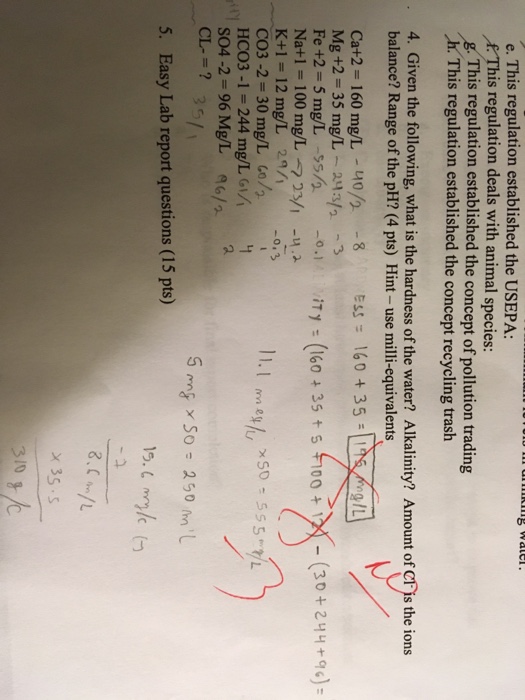 e. This regulation established the USEPA:
f. This regulation deals with animal species:
g. This regulation established the concept of pollution trading
h. This regulation established the concept recycling trash
4. Given the following, what is the hardness of the water? Alkalinity? Amount of Cl⁻ is the ions
balance? Range of the pH? (4 pts) Hint – use milli-equivalents
Ca+2 = 160 mg/L - 40/2 - 8 ess = 160 + 35 = 195 mg/L
Mg +2 = 35 mg/L - 24.3/2 - 3
Fe +2 = 5 mg/L - 55/2 - 0.1 ity = (160 + 35 + 5 + 100 + 12) - (30 + 244 + 96) =
Na+1 = 100 mg/L → 23/1 - 4.2
K+1 = 12 mg/L 29/1 - 0.3
CO3 -2 = 30 mg/L 60/2 1 11.1 meq/L x 50 = 555 mg/L
HCO3 -1 = 244 mg/L 61/1 4
SO4 -2 = 96 Mg/L 96/2 2
CL- = ? 35/1
5 mg x 50 = 250
5. Easy Lab report questions (15 pts)
15.6 mg/L (-)
-7
8.6 m/L
x 35.5
310 g/L